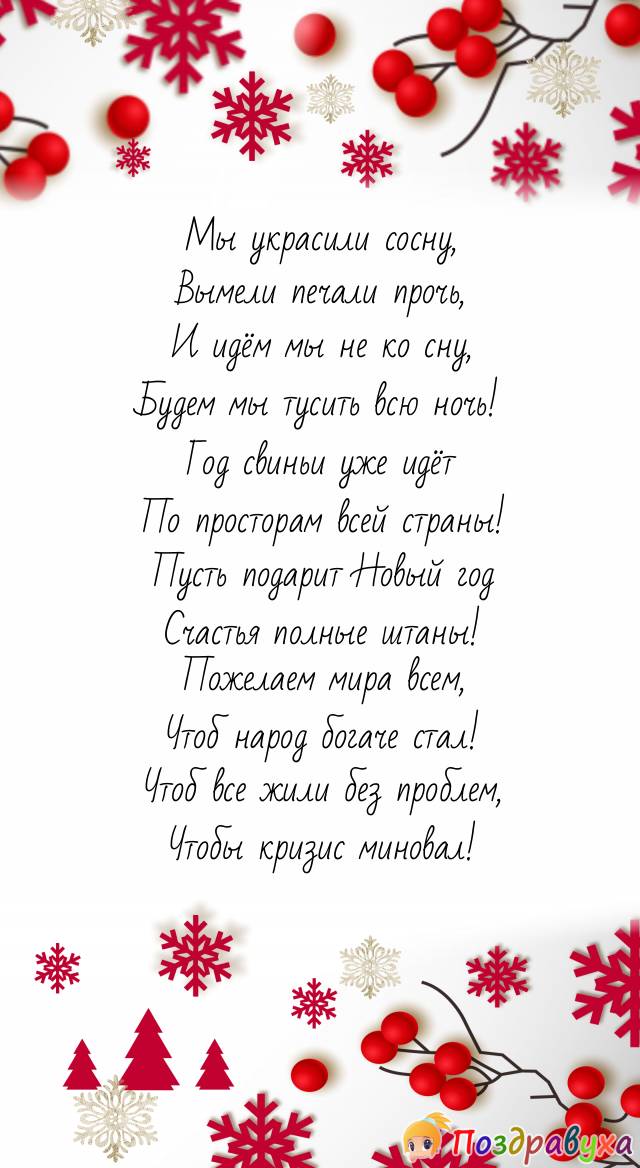 Мы украсили сосну,
Вымели печали прочь,
И идём мы не ко сну,
Будем мы тусить всю ночь!
Год свиньи уже идёт
По просторам всей страны!
Пусть подарит Новый год
Счастья полные штаны!
Пожелаем мира всем,
Чтоб народ богаче стал!
Чтоб все жили без проблем,
Чтобы кризис миновал!
Поздравуха